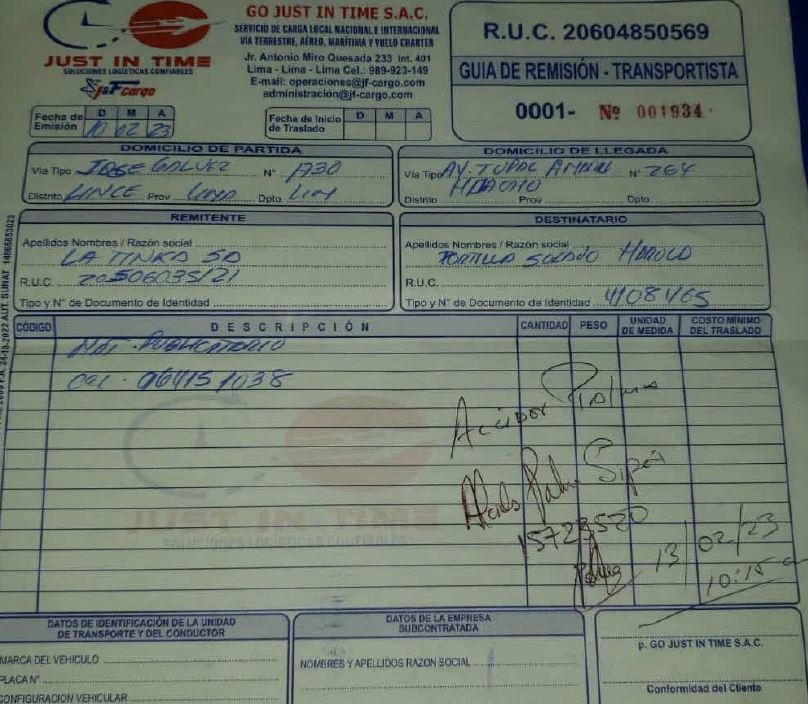 JUST IN TIME
SOLUCIONES LOGÍSTICAS CONFIABLES
J&F Cargo
GO JUST IN TIME S.A.C.
SERVICIO DE CARGA LOCAL NACIONAL E INTERNACIONAL
VÍA TERRESTRE, AÉREO, MARÍTIMA Y VUELO CHARTER
Jr. Antonio Miro Quesada 233 Int. 401
Lima - Lima - Lima Cel.: 989-923-149
E-mail: operaciones@jf-cargo.com
administración@jf-cargo.com
R.U.C. 20604850569
GUIA DE REMISIÓN - TRANSPORTISTA
0001- Nº 001934
Fecha de Emisión D M A
10 02 23
Fecha de Inicio de Traslado D M A
DOMICILIO DE PARTIDA
Vía Tipo JOSE GALVEZ N° 1730
Distrito LINCE Prov LIMA Dpto LIM
DOMICILIO DE LLEGADA
Vía Tipo AV. TUPAC AMARU N° 264
HUACHO
Distrito Prov Dpto
REMITENTE
Apellidos Nombres / Razón social
LA TINKA SA
R.U.C. 20506035121
Tipo y N° de Documento de Identidad
DESTINATARIO
Apellidos Nombres / Razón social
PORTILLA SOLANO HAROLD
R.U.C.
Tipo y N° de Documento de Identidad 41081465
CÓDIGO DESCRIPCIÓN CANTIDAD PESO UNIDAD DE MEDIDA COSTO MÍNIMO DEL TRASLADO
MAT. PUBLICITARIO
CEL. 964151038
15723520
13/02/23
10:15 a
JUST IN TIME
SOLUCIONES LOGÍSTICAS CONFIABLES
24-10-2022 AUT. SUNAT 14865853023
DATOS DE IDENTIFICACIÓN DE LA UNIDAD
DE TRANSPORTE Y DEL CONDUCTOR
MARCA DEL VEHICULO
PLACA N°
CONFIGURACIÓN VEHICULAR
DATOS DE LA EMPRESA
SUBCONTRATADA
NOMBRES Y APELLIDOS RAZON SOCIAL
p. GO JUST IN TIME S.A.C.
Conformidad del Cliente